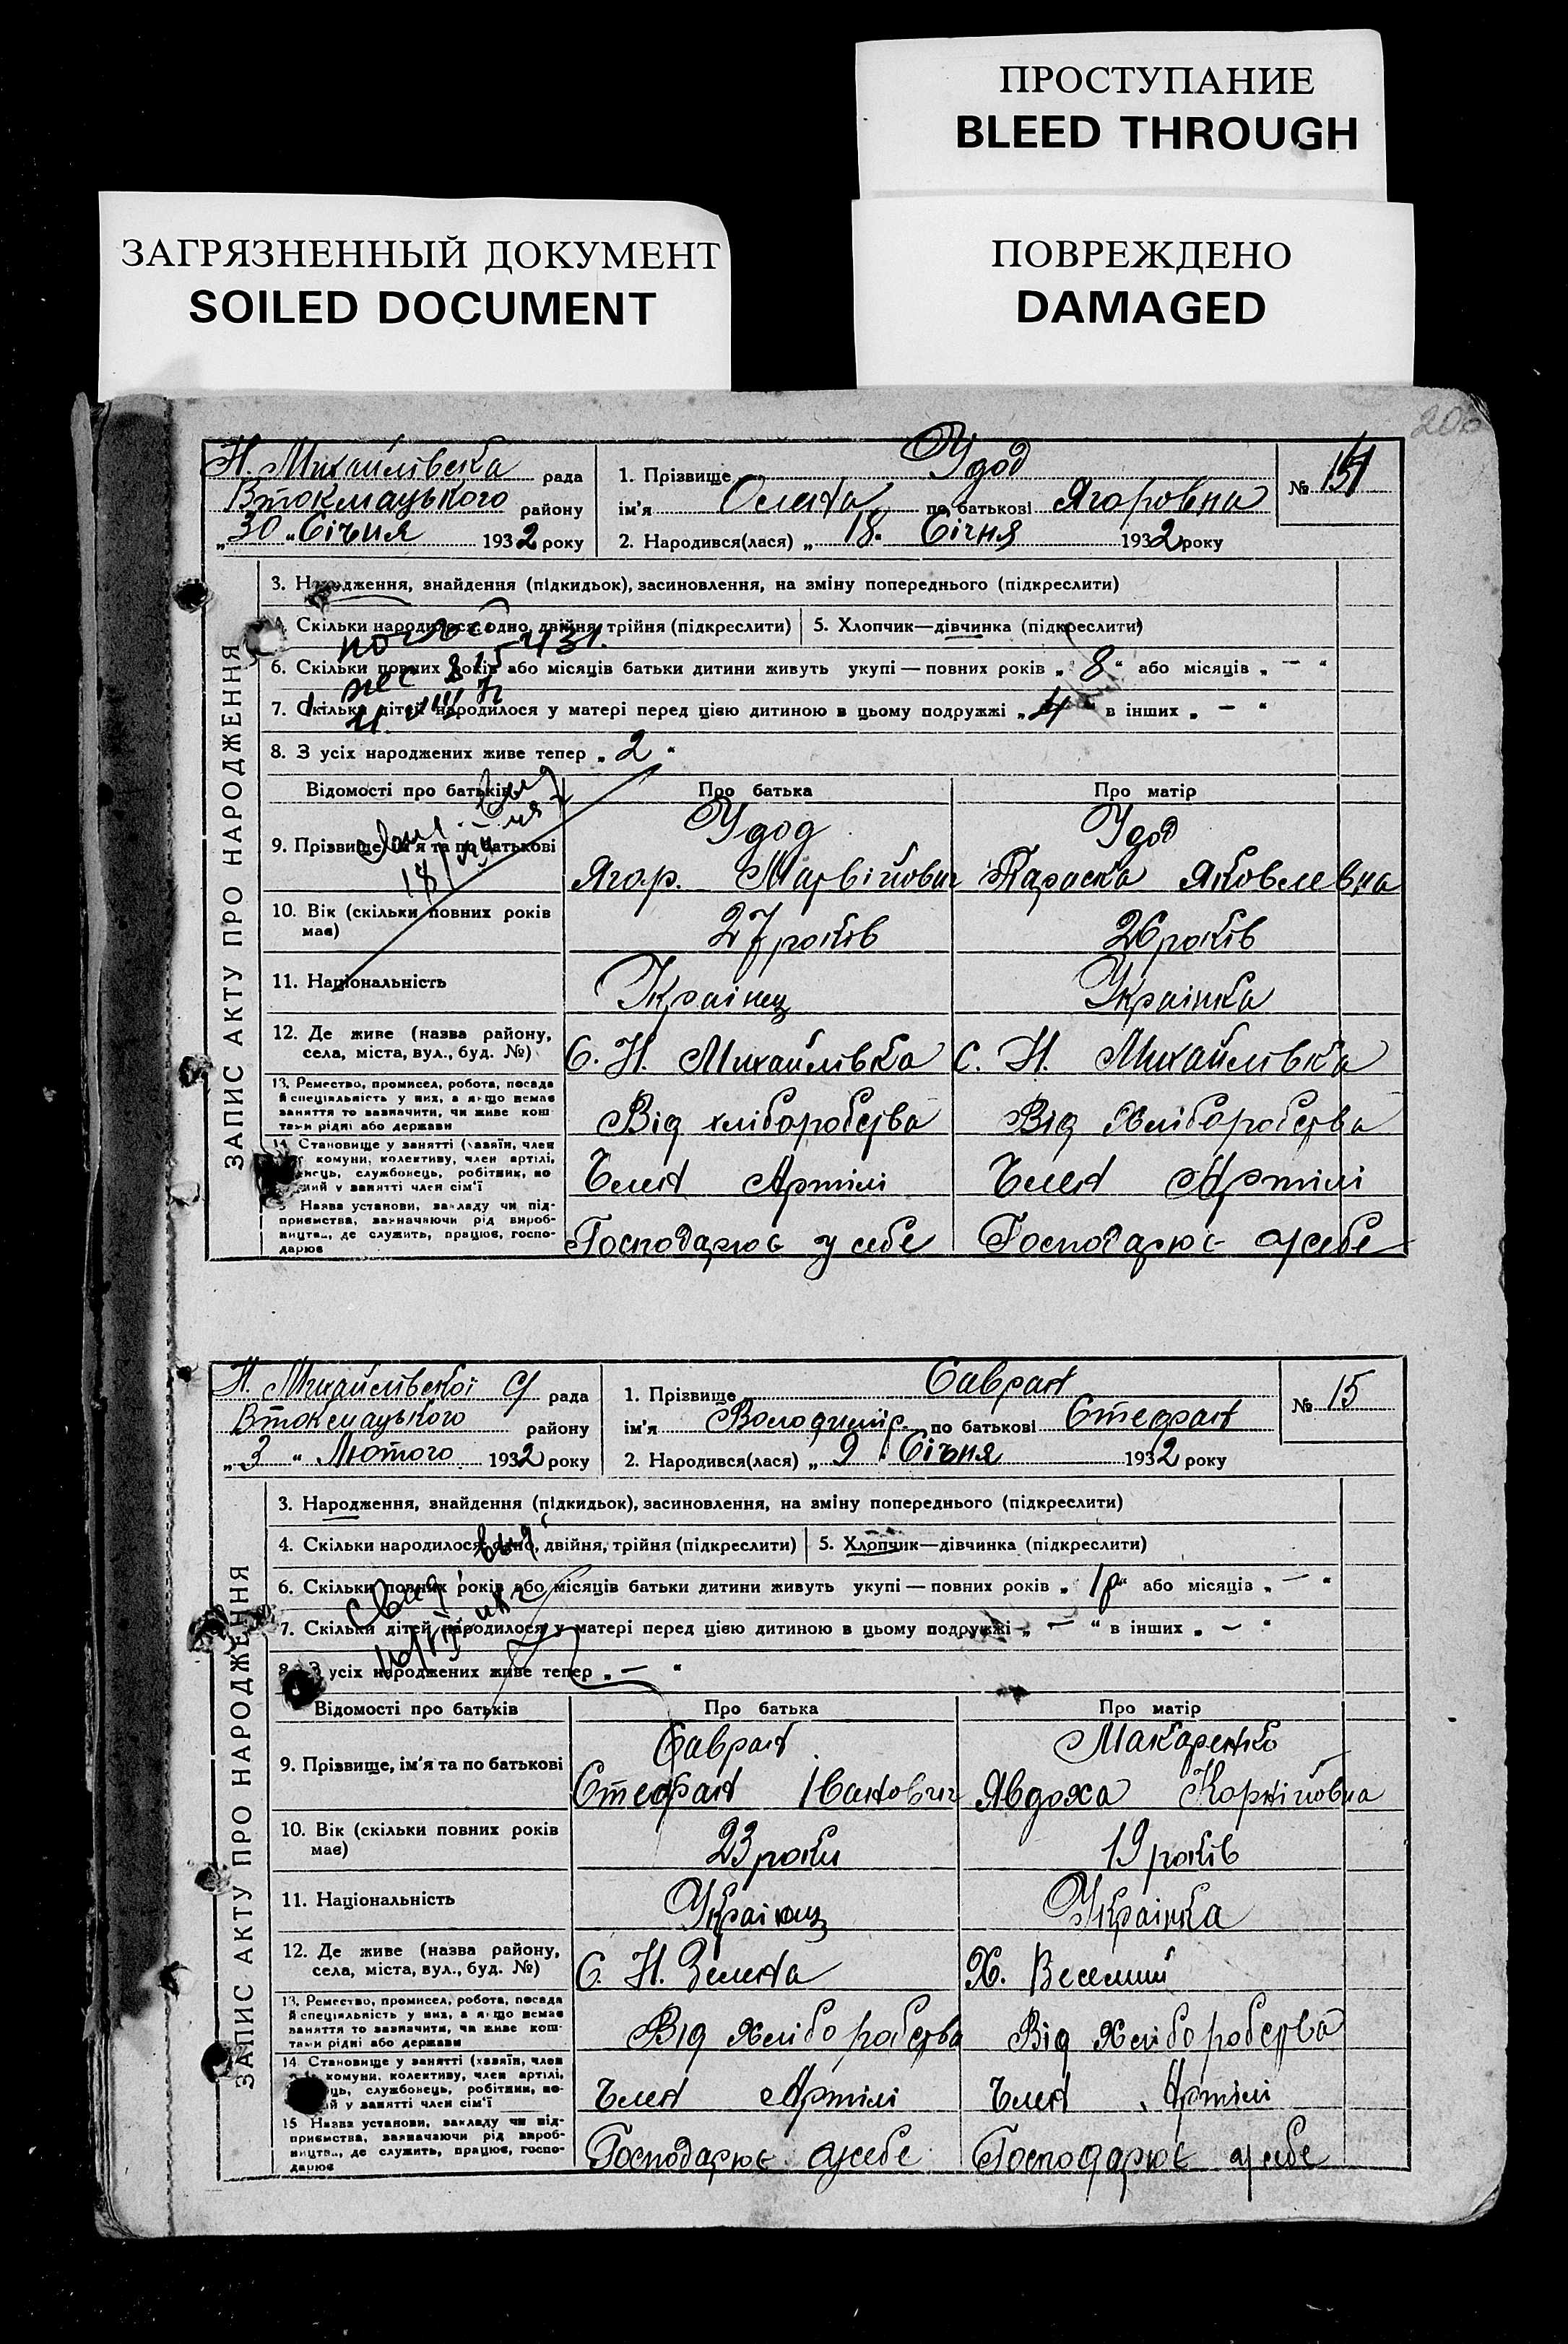 ПРОСТУПАНИЕ
BLEED THROUGH
ЗАГРЯЗНЕННЫЙ ДОКУМЕНТ
SOILED DOCUMENT
ПОВРЕЖДЕНО
DAMAGED
Н. Михайлівська рада
Втокмацького району
„30 „ Січня 1932 року
1. Прізвище Удод
ім'я Олена по батькові Ягоровна
2. Народився(лася) „ 18. Січня 1932 року
№
ЗАПИС АКТУ ПРО НАРОДЖЕННЯ
3. Народження, знайдення (підкидьок), засиновлення, на зміну попереднього (підкреслити)
4. Скільки народилося: одно, двійня, трійня (підкреслити) 5. Хлопчик—дівчинка (підкреслити)
6. Скільки повних років або місяців батьки дитини живуть укупі — повних років „ 8 “ або місяців „ — “
7. Скільки дітей народилося у матері перед цією дитиною в цьому подружжі „ 4 “ в інших „ — “
8. З усіх народжених живе тепер „ 2 “
Відомості про батьків Про батька Про матір
9. Прізвище, ім'я та по батькові Удод Удод
Ягор. Матвійович Параска Яковлевна
10. Вік (скільки повних років має) 27 років 26 років
11. Національність Украінец Украінка
12. Де живе (назва району, села, міста, вул., буд. №) С. Н. Михайлівка С. Н. Михайлівка
13. Ремество, промисел, робота, посада й спеціяльність у них, а якщо немає заняття то зазначити, чи живе коштами рідні або держави Від хліборобства Від Хліборобства
14 Становище у занятті (хазяїн, член комуни, колективу, член артілі, службовець, робітник, у занятті член сім'ї Член Артілі Член Артілі
Назва установи, закладу чи підприємства, зазначаючи рід виробництва, де служить, працює, господарює Господарює у себе Господарює у себе
Н. Михайлівскоі С/ рада
Втокмацького району
„ 3 “ Лютого 1932 року
1. Прізвище Савран
ім'я Володимір по батькові Стефан
2. Народився(лася) „ 9 Січня 1932 року
№ 15
ЗАПИС АКТУ ПРО НАРОДЖЕННЯ
3. Народження, знайдення (підкидьок), засиновлення, на зміну попереднього (підкреслити)
4. Скільки народилося: одно, двійня, трійня (підкреслити) 5. Хлопчик—дівчинка (підкреслити)
6. Скільки повних років або місяців батьки дитини живуть укупі — повних років „ 1р “ або місяців „ — “
7. Скільки дітей народилося у матері перед цією дитиною в цьому подружжі „ — “ в інших „ — “
8. З усіх народжених живе тепер „ — “
Відомості про батьків Про батька Про матір
9. Прізвище, ім'я та по батькові Савран Макаренко
Стефан Іванович Явдоха Корнійовна
10. Вік (скільки повних років має) 23 роки 19 років
11. Національність Украінец Украінка
12. Де живе (назва району, села, міста, вул., буд. №) С. Н. Зелена Х. Веселий
13. Ремество, промисел, робота, посада й спеціяльність у них, а якщо немає заняття то зазначити, чи живе коштами рідні або держави Від Хліборобства Від Хліборобства
14 Становище у занятті (хазяїн, член комуни, колективу, член артілі, службовець, робітник, у занятті член сім'ї Член Артілі Член Артілі
15 Назва установи, закладу чи підприємства, зазначаючи рід виробництва, де служить, працює, господарює Господарює у себе Господарює у себе